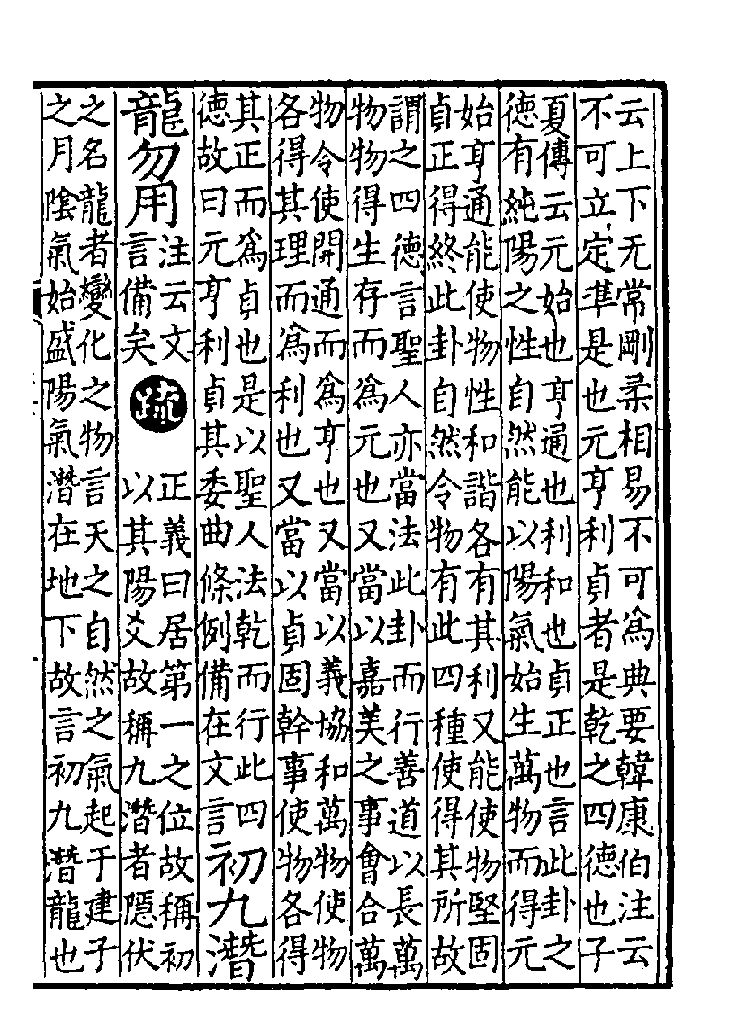 云上下无常剛柔相易不可爲典要韓康伯注云
不可立定準是也元亨利貞者是乾之四德也子
夏傳云元始也亨通也利和也貞正也言此卦之
德有純陽之性自然能以陽氣始生萬物而得元
始亨通能使物性和諧各有其利又能使物堅固
貞正得終此卦自然令物有此四種使得其所故
謂之四德言聖人亦當法此卦而行善道以長萬
物物得生存而爲元也又當以嘉美之事會合萬
物令使開通而爲亨也又當以義協和萬物使物
各得其理而爲利也又當以貞固幹事使物各得
其正而爲貞也是以聖人法乾而行此四
德故曰元亨利貞其委曲條例備在文言
初九潛
龍勿用
注云文
言備矣
疏
正義曰居第一之位故稱初
以其陽爻故稱九潛者隱伏
之名龍者變化之物言天之自然之氣起于建子
之月陰氣始盛陽氣潛在地下故言初九潛龍也